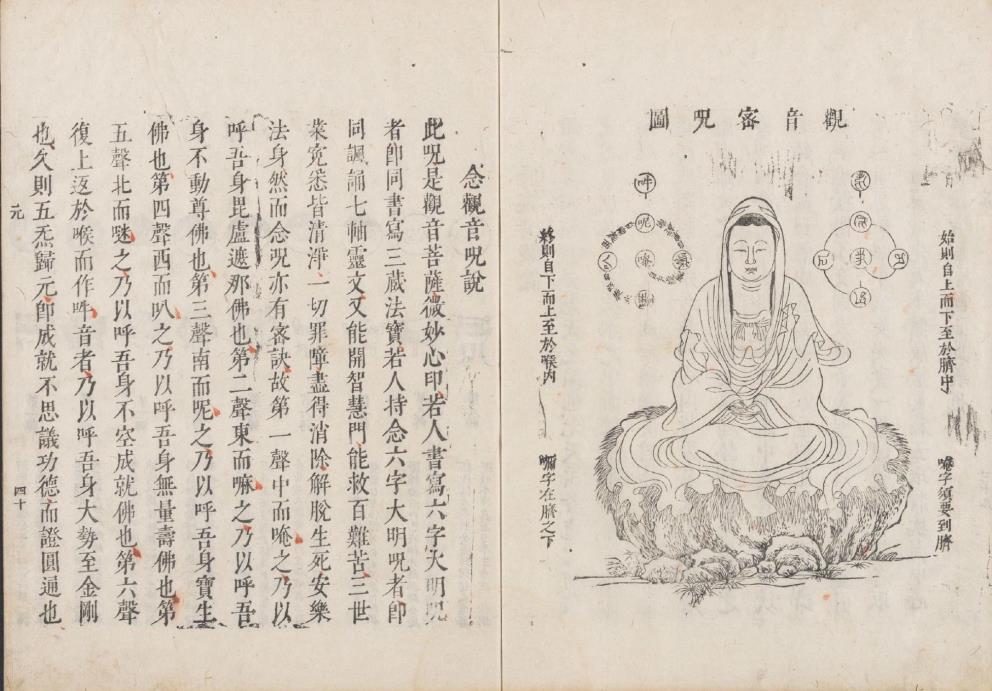 觀音密咒圖
始則自上而下至於臍中
唵字須要到臍
終則自下而上至於喉內
嘛字在臍之下
吽
呢
念觀音咒說
此咒是觀音菩薩微妙心印若人書寫六字大明咒
者卽同書寫三藏法寶若人持念六字大明咒者卽
同諷誦七軸靈文又能開智慧門能救百難苦三世
業寃悉皆清淨一切罪障盡得消除解脫生死安樂
法身然而念咒亦有密訣故第一聲中而唵之乃以
呼吾身毘盧遮那佛也第二聲東而嘛之乃以呼吾
身不動尊佛也第三聲南而呢之乃以呼吾身寶生
佛也第四聲西而叭之乃以呼吾身無量壽佛也第
五聲北而𠺗之乃以呼吾身不空成就佛也第六聲
復上返於喉而作吽音者乃以呼吾身大勢至金剛
也久則五炁歸元卽成就不思議功德而證圓通也
元
四十